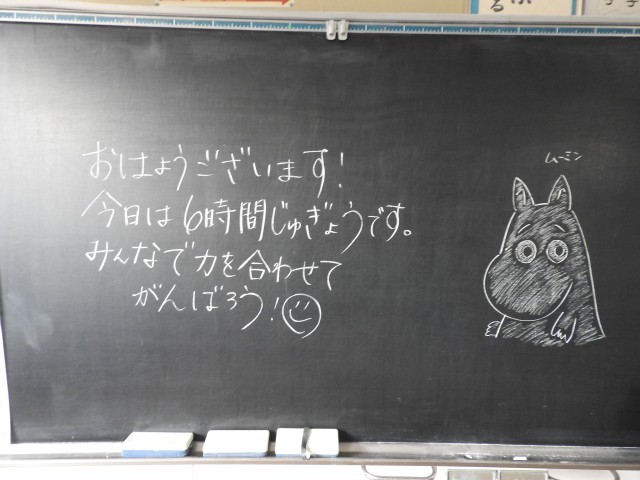 おはようございます!
今日は6時間じゅぎょうです。
みんなで力を合わせて
がんばろう!
ムーミン